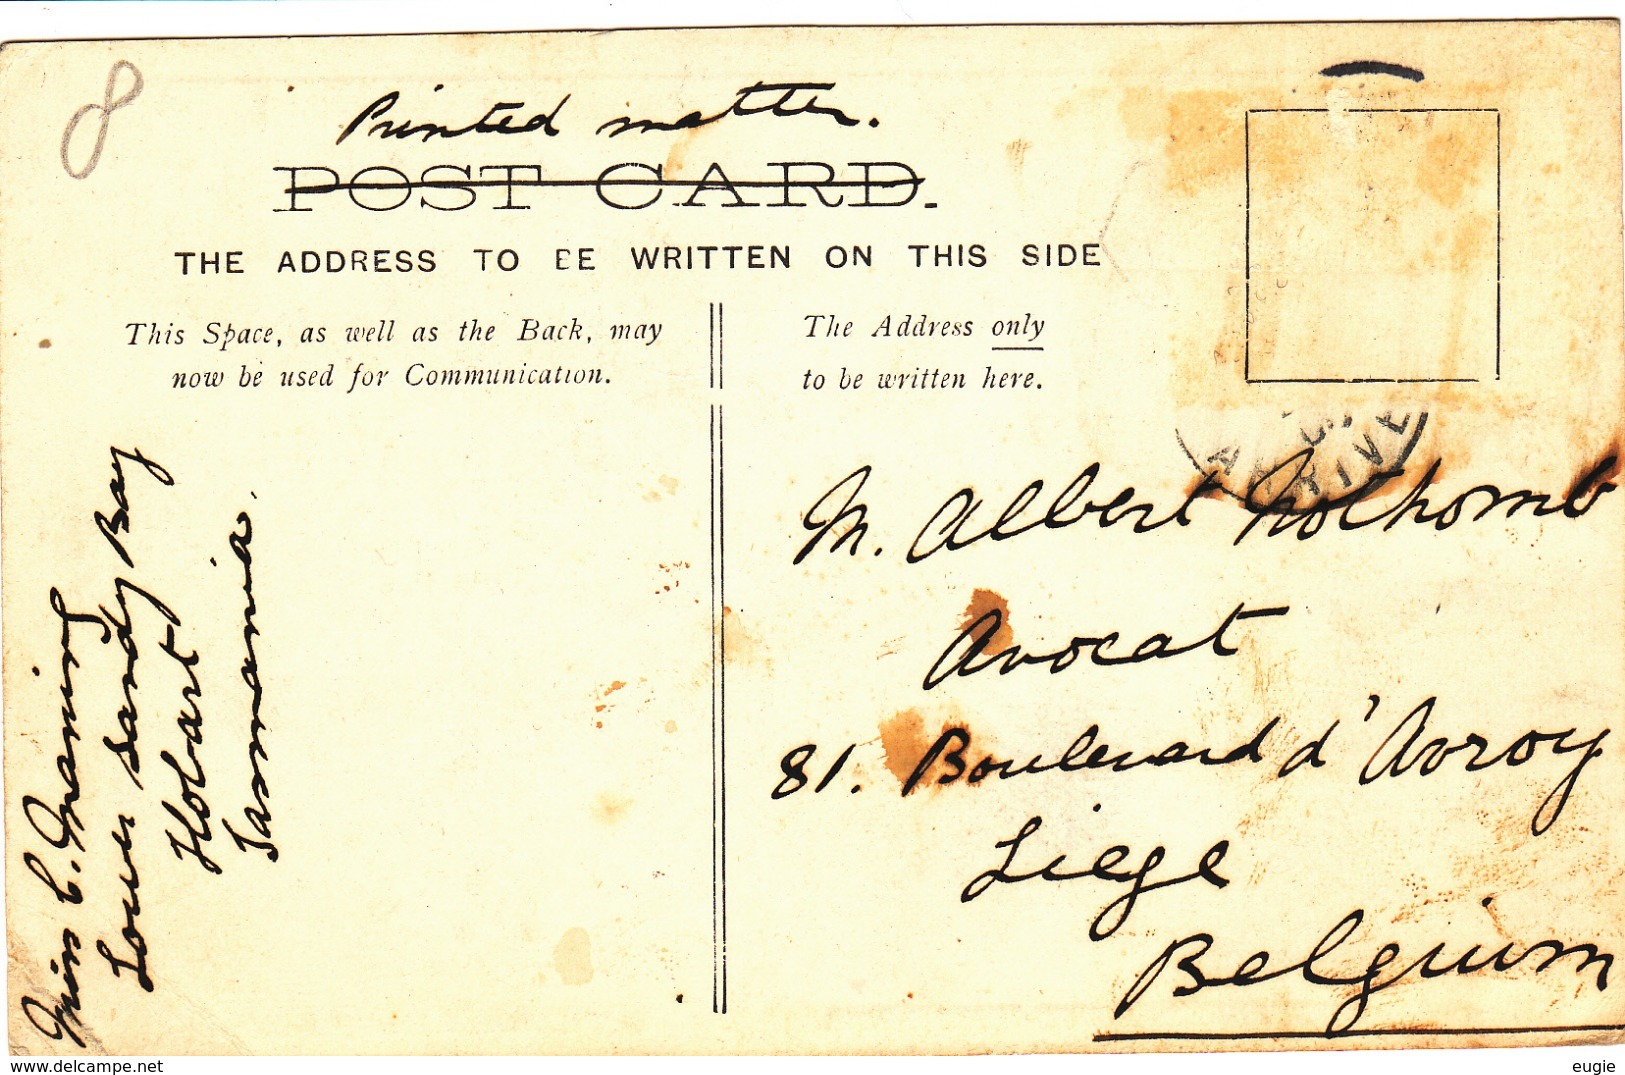 8
Printed matter.
POST CARD.
THE ADDRESS TO BE WRITTEN ON THIS SIDE
This Space, as well as the Back, may
now be used for Communication.
The Address only
to be written here.
ARRIVE
M. Albert Nothomb
Avocat
81. Boulevard d'Avroy
Liege
Belgium
Miss C. Maning
Lower Sandy Bay
Hobart
Tasmania.
www.delcampe.net
eugie